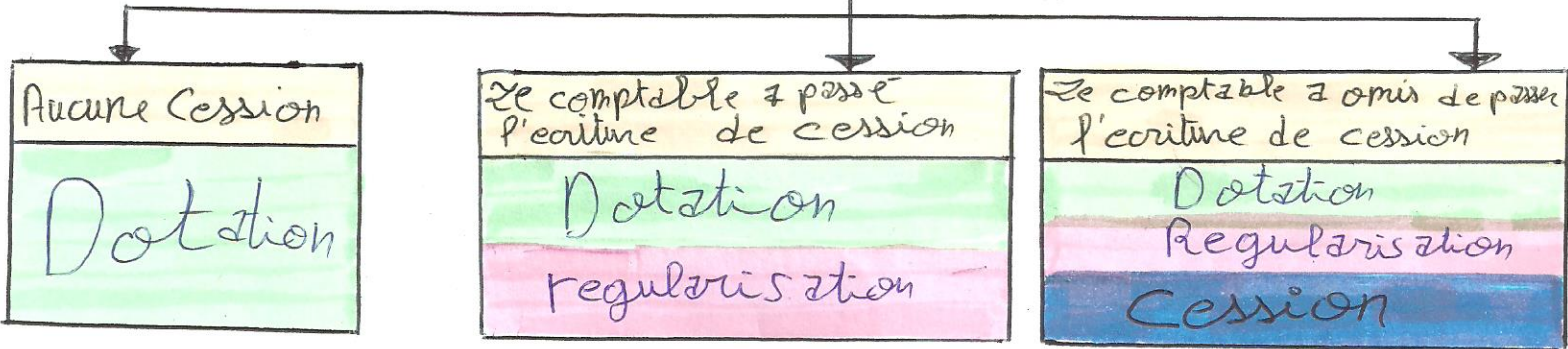 Aucune Cession
Dotation
Le comptable a passé
l'ecriture de cession
Dotation
regularisation
Le comptable a omis de passer
l'ecriture de cession
Dotation
Regularisation
Cession